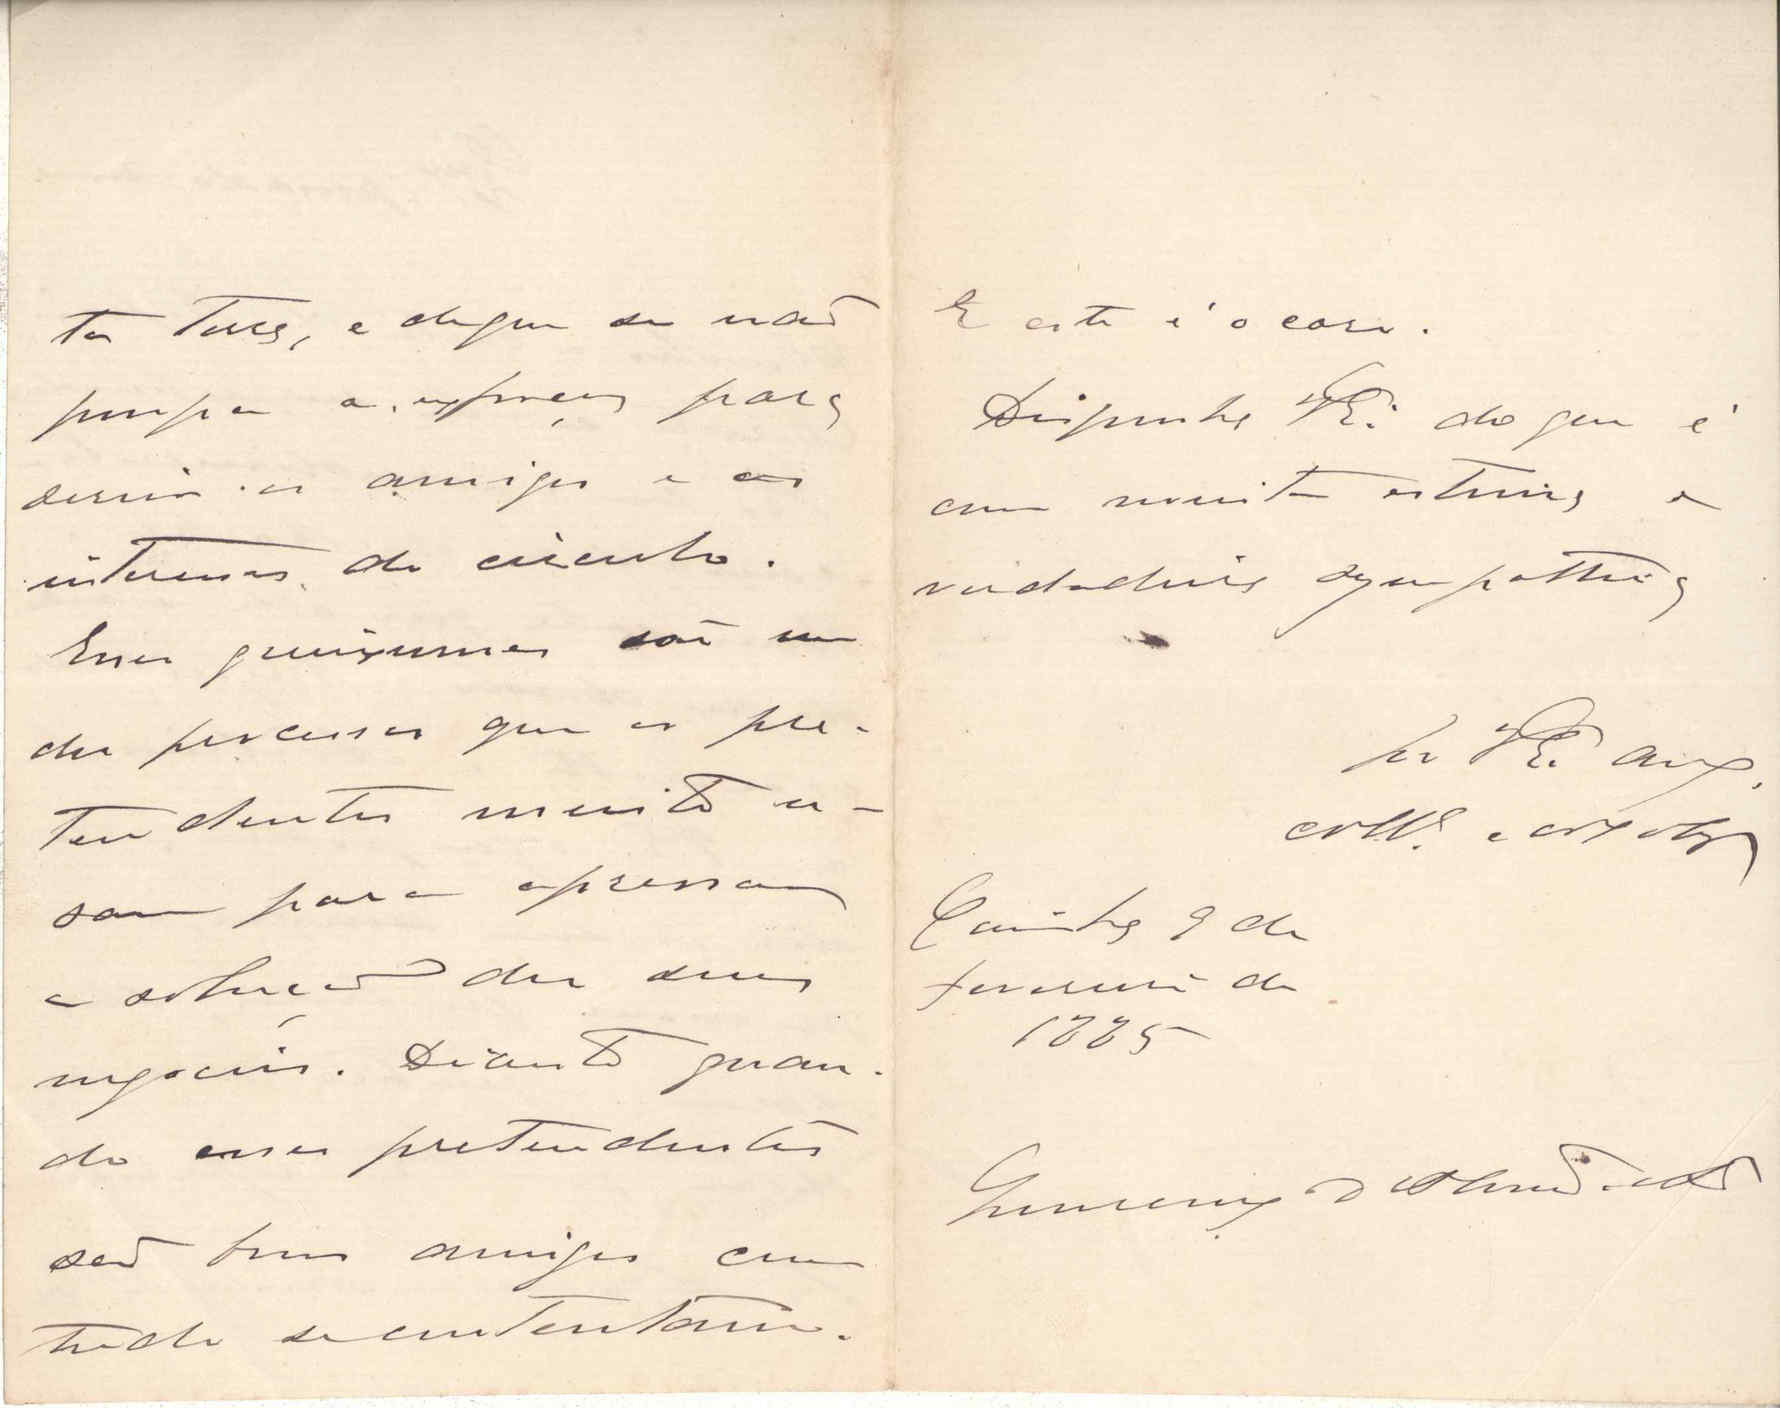 ta terra, e de que se não
poupa a esforços para
servir os amigos e os
interesses do circulo.
Esses queixumes são um
dos processos que os pre-
tendentes muito u-
sam para apressar
a solução dos seus
negocios. Diante quan-
do esses pretendentes
são bons amigos com
tudo se contentam.
E este é o caso.
Disponha VEx. do que é
com muita estima e
verdadeira sympathia
de VEx. amº.
coll. e
Coimbra 9 de
fevereiro de
1885